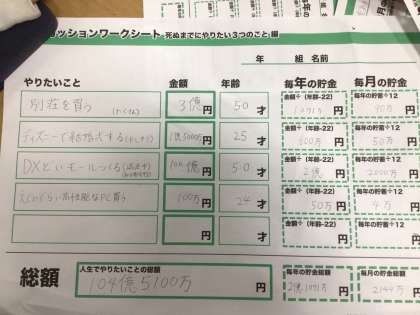 ッションワークシート 死ぬまでにやりたい3つのこと 編
年 組 名前
やりたいこと 金額 年齢 毎年の貯金 毎月の貯金
別荘を買う 3億円 50才 金額÷(年齢-22) 1071万円 毎年の貯蓄÷12 円
ディズニーで結婚式する 1億5000万円 25才 金額÷(年齢-22) 円 毎年の貯蓄÷12 50万円
モールつくる 100億円 50才 金額÷(年齢-22) 2億円 毎年の貯蓄÷12 2000万円
高性能なPC買う 100万円 24才 金額÷(年齢-22) 50万円 毎年の貯蓄÷12 4万円
円 才 金額÷(年齢-22) 円 毎年の貯蓄÷12 円
総額 人生でやりたいことの総額 104億5100万円 毎年の貯金総額 2億1071万円 毎月の貯金総額 2144万円